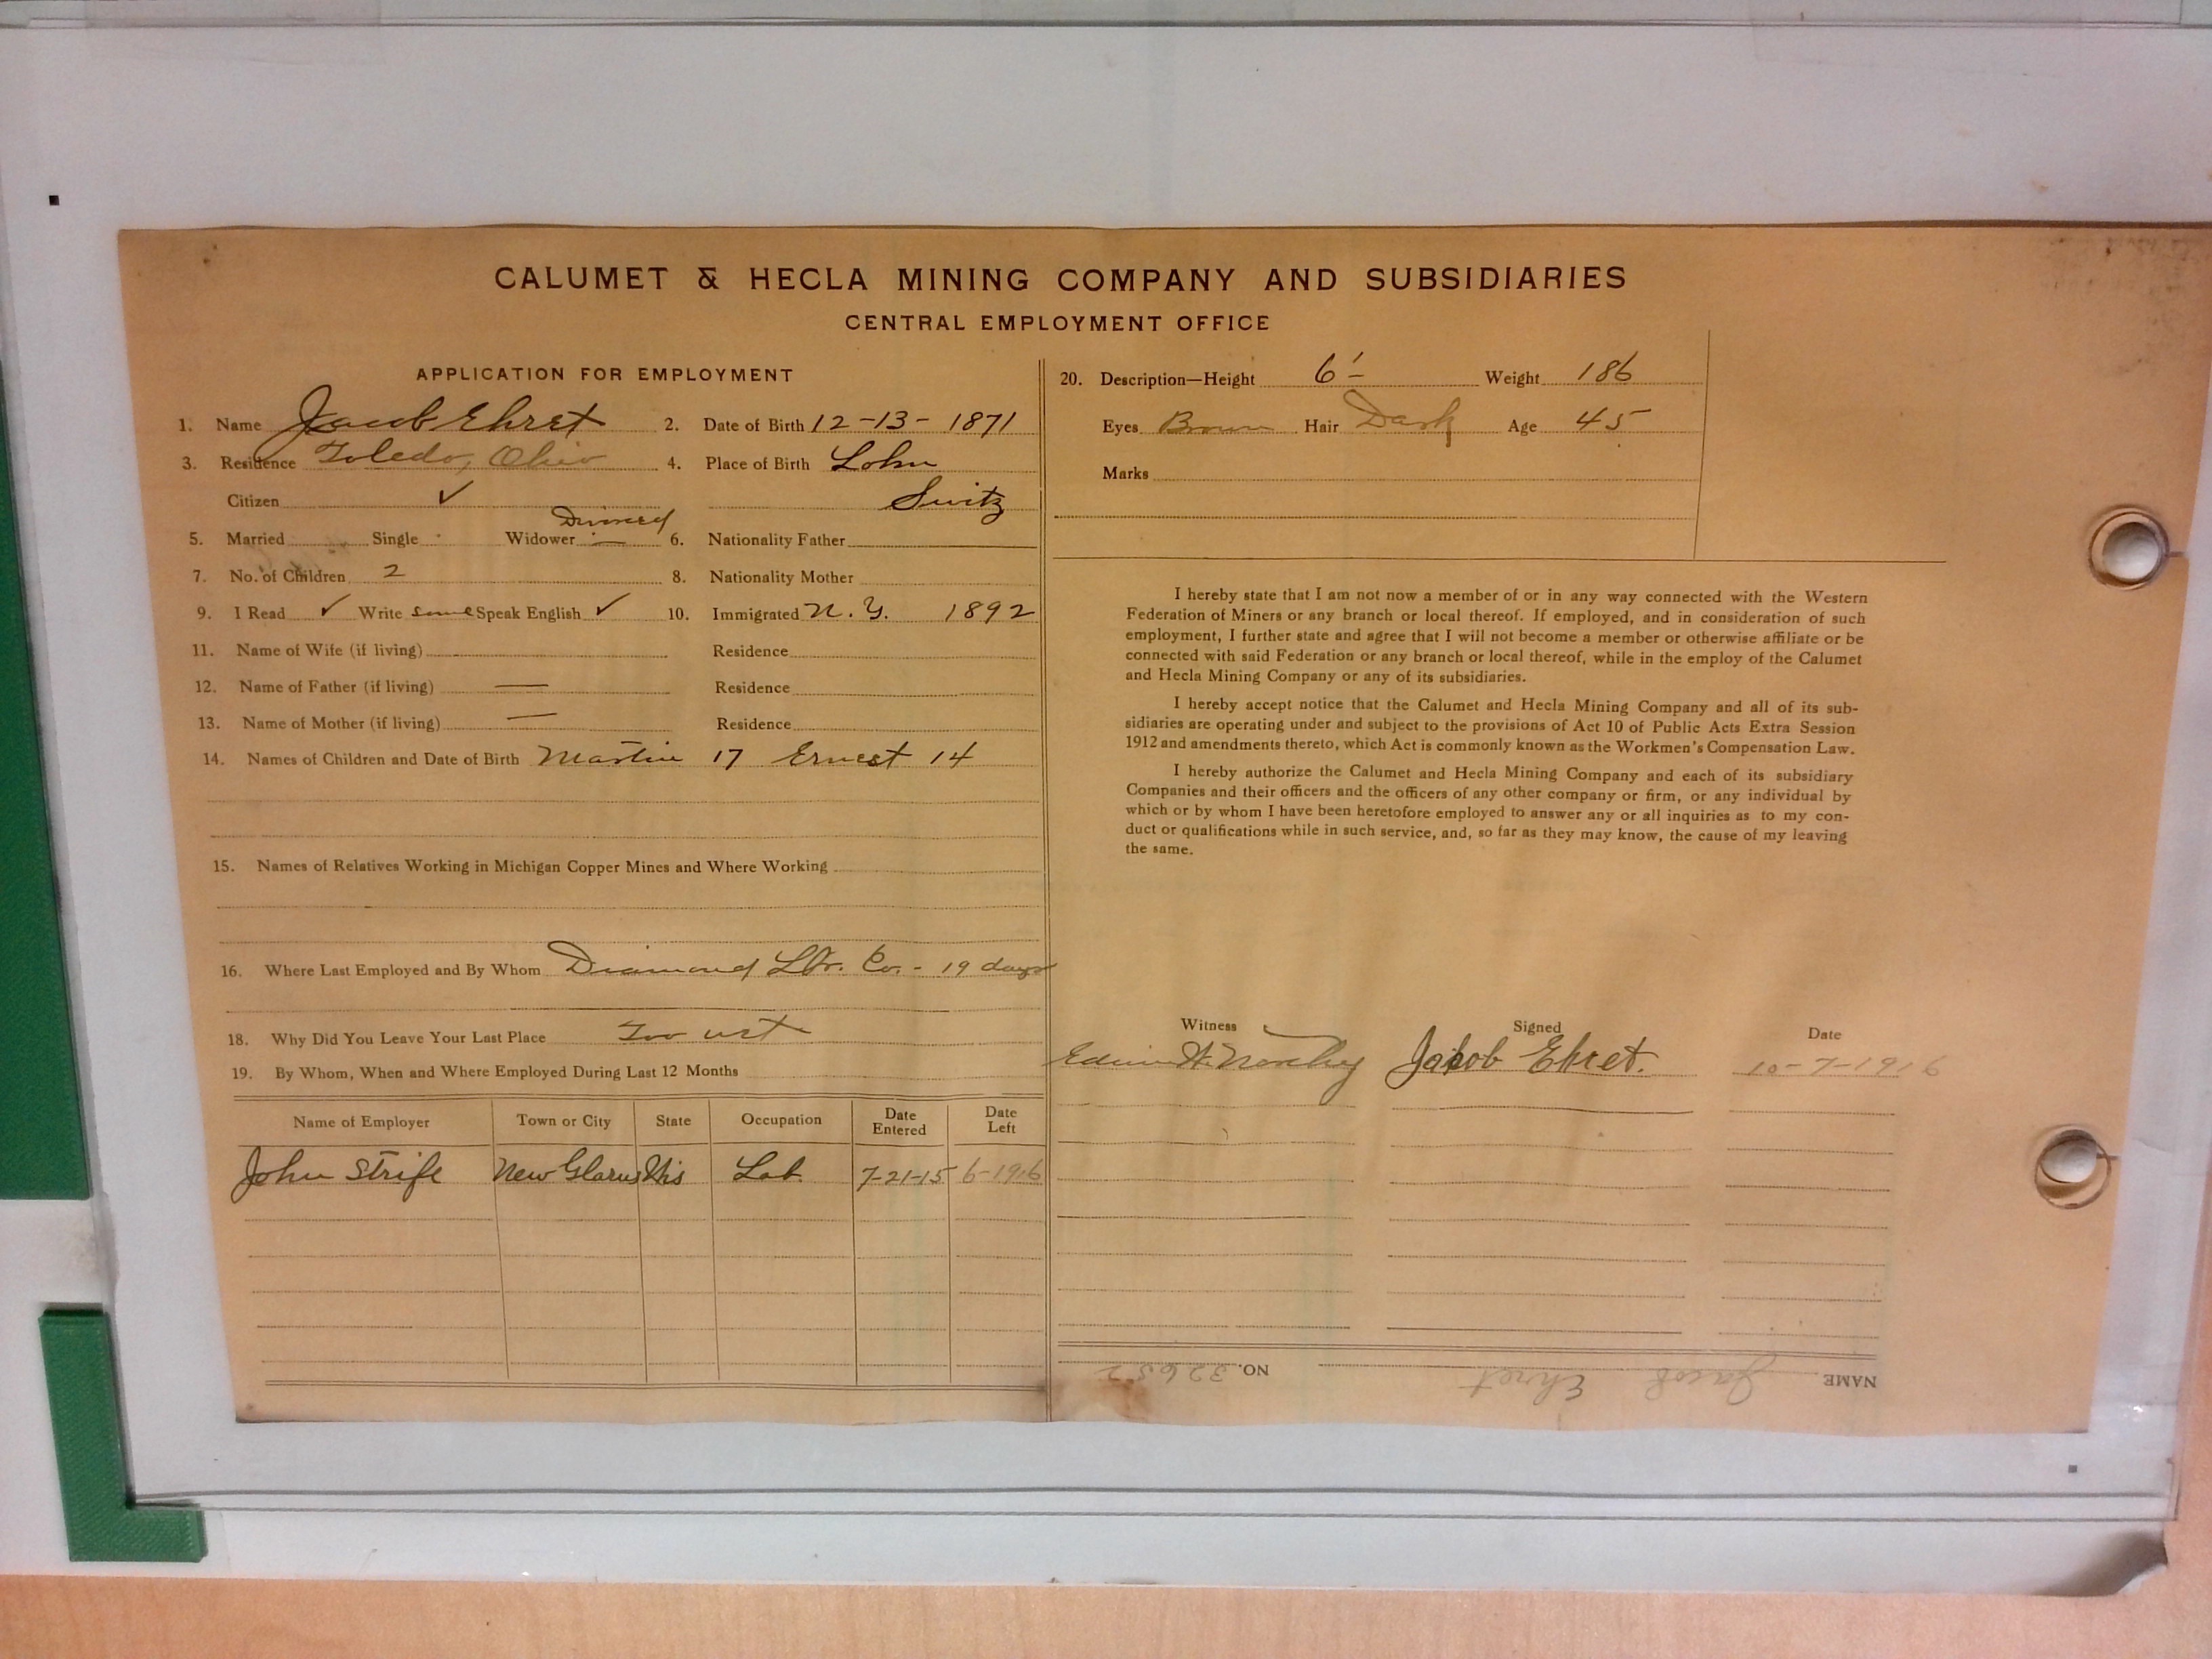 CALUMET & HECLA MINING COMPANY AND SUBSIDIARIES
CENTRAL EMPLOYMENT OFFICE
APPLICATION FOR EMPLOYMENT
1. Name Jacob Ehret 2. Date of Birth 12-13-1871
3. Residence Toledo, Ohio 4. Place of Birth Lohn
Citizen ✓ Switz
Divorced
5. Married Single Widower — 6. Nationality Father
7. No. of Children 2 8. Nationality Mother
9. I Read ✓ Write some Speak English ✓ 10. Immigrated N. Y. 1892
11. Name of Wife (if living) Residence
12. Name of Father (if living) — Residence
13. Name of Mother (if living) — Residence
14. Names of Children and Date of Birth Martin 17 Ernest 14
15. Names of Relatives Working in Michigan Copper Mines and Where Working
16. Where Last Employed and By Whom Diamond Lbr. Co. - 19 days
18. Why Did You Leave Your Last Place Too wet
19. By Whom, When and Where Employed During Last 12 Months
Name of Employer Town or City State Occupation Date Entered Date Left
John Strife New Glarus Wis Lab. 7-21-15 6-1916
20. Description—Height 6'- Weight 186
Eyes Brown Hair Dark Age 45
Marks
I hereby state that I am not now a member of or in any way connected with the Western
Federation of Miners or any branch or local thereof. If employed, and in consideration of such
employment, I further state and agree that I will not become a member or otherwise affiliate or be
connected with said Federation or any branch or local thereof, while in the employ of the Calumet
and Hecla Mining Company or any of its subsidiaries.
I hereby accept notice that the Calumet and Hecla Mining Company and all of its sub-
sidiaries are operating under and subject to the provisions of Act 10 of Public Acts Extra Session
1912 and amendments thereto, which Act is commonly known as the Workmen's Compensation Law.
I hereby authorize the Calumet and Hecla Mining Company and each of its subsidiary
Companies and their officers and the officers of any other company or firm, or any individual by
which or by whom I have been heretofore employed to answer any or all inquiries as to my con-
duct or qualifications while in such service, and, so far as they may know, the cause of my leaving
the same.
Witness Signed Date
Edwin H. Jakob Ehret. 10-7-1916
NAME Jacob Ehret NO. 32652